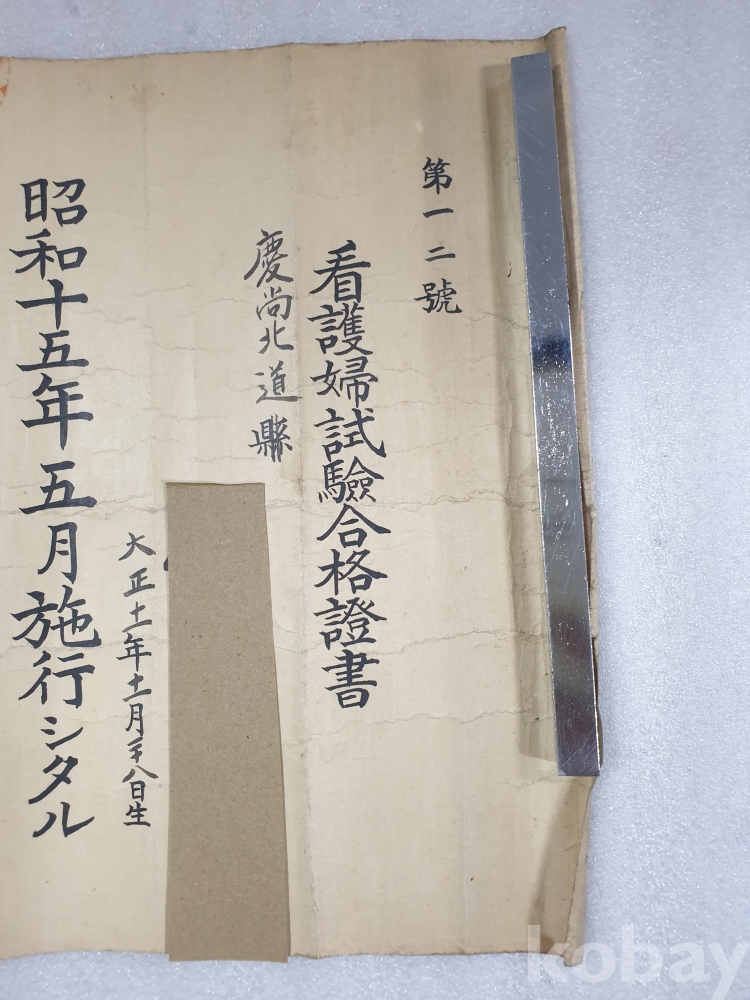 第一二號
看護婦試驗合格證書
慶尚北道縣
大正十一年十一月二十八日生
昭和十五年五月施行シタル
kobay